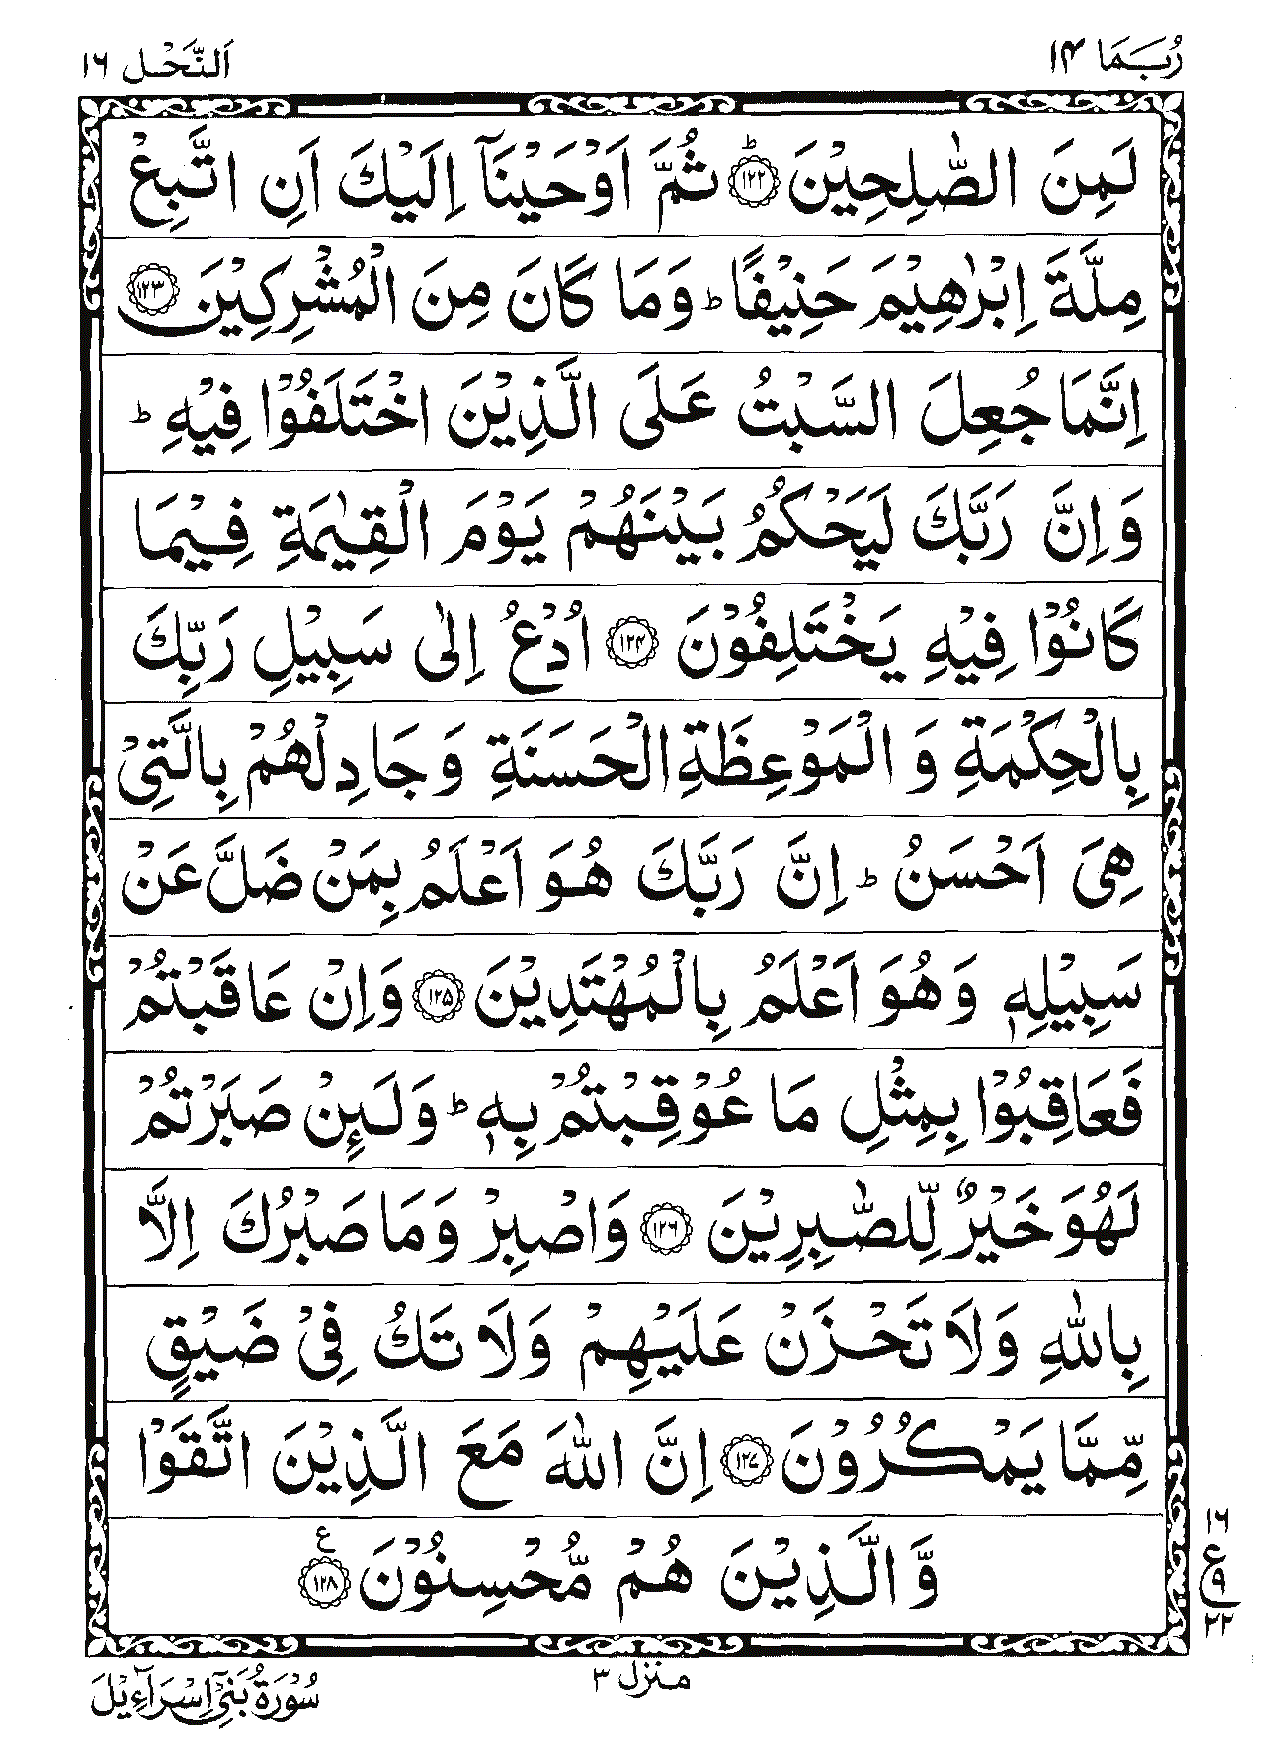 رُبَمَا ١٤
اَلنَّحْل ١٦
لَمِنَ الصّٰلِحِيْنَ ؕ﴿۱۲۲﴾ ثُمَّ اَوْحَيْنَاۤ اِلَيْكَ اَنِ اتَّبِعْ
مِلَّةَ اِبْرٰهِيْمَ حَنِيْفًا ؕ وَمَا كَانَ مِنَ الْمُشْرِكِيْنَ ﴿۱۲۳﴾
اِنَّمَا جُعِلَ السَّبْتُ عَلَى الَّذِيْنَ اخْتَلَفُوْا فِيْهِ ؕ
وَاِنَّ رَبَّكَ لَيَحْكُمُ بَيْنَهُمْ يَوْمَ الْقِيٰمَةِ فِيْمَا
كَانُوْا فِيْهِ يَخْتَلِفُوْنَ ﴿۱۲۴﴾ اُدْعُ اِلٰى سَبِيْلِ رَبِّكَ
بِالْحِكْمَةِ وَ الْمَوْعِظَةِ الْحَسَنَةِ وَ جَادِلْهُمْ بِالَّتِىْ
هِىَ اَحْسَنُ ؕ اِنَّ رَبَّكَ هُوَ اَعْلَمُ بِمَنْ ضَلَّ عَنْ
سَبِيْلِهٖ وَ هُوَ اَعْلَمُ بِالْمُهْتَدِيْنَ ﴿۱۲۵﴾ وَاِنْ عَاقَبْتُمْ
فَعَاقِبُوْا بِمِثْلِ مَا عُوْقِبْتُمْ بِهٖ ؕ وَلَئِنْ صَبَرْتُمْ
لَهُوَ خَيْرٌ لِّلصّٰبِرِيْنَ ﴿۱۲۶﴾ وَاصْبِرْ وَمَا صَبْرُكَ اِلَّا
بِاللّٰهِ وَلَا تَحْزَنْ عَلَيْهِمْ وَلَا تَكُ فِىْ ضَيْقٍ
مِّمَّا يَمْكُرُوْنَ ﴿۱۲۷﴾ اِنَّ اللّٰهَ مَعَ الَّذِيْنَ اتَّقَوْا
وَّ الَّذِيْنَ هُمْ مُّحْسِنُوْنَ ﴿۱۲۸﴾ ع
١٦
ع
٩
٢٢
منزل ٣
سُوْرَةُ بَنِىْۤ اِسْرَآءِيْلَ